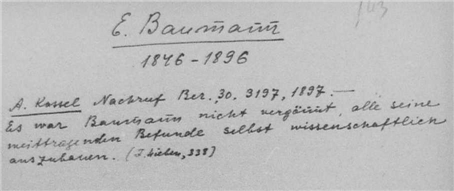 143
E. Baumann
1846-1896
A. Kossel Nachruf Ber. 30. 3197, 1897. —
Es war Baumann nicht vergönnt, alle seine
weittragenden Befunde selbst wissenschaftlich
auszubauen. (F. Lieben, 338)